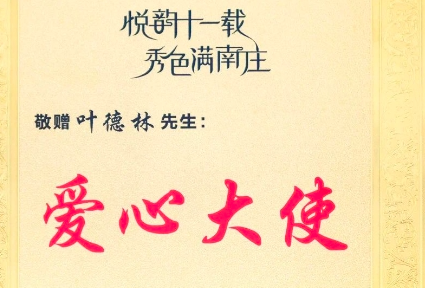 悦韵十一载
秀色满南庄
敬赠叶德林先生:
爱心大使